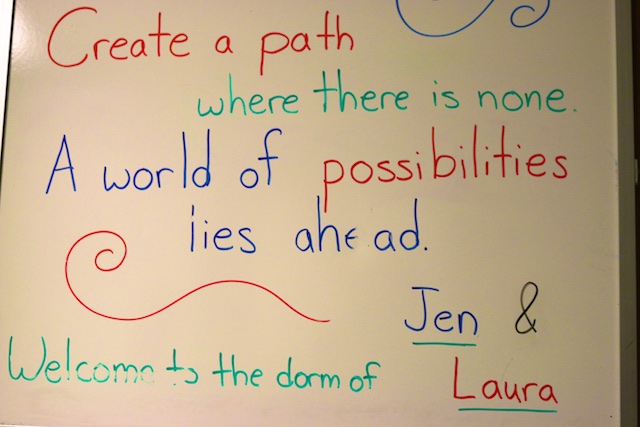 Create a path
where there is none.
A world of possibilities
lies ahead.
Jen &
Welcome to the dorm of
Laura